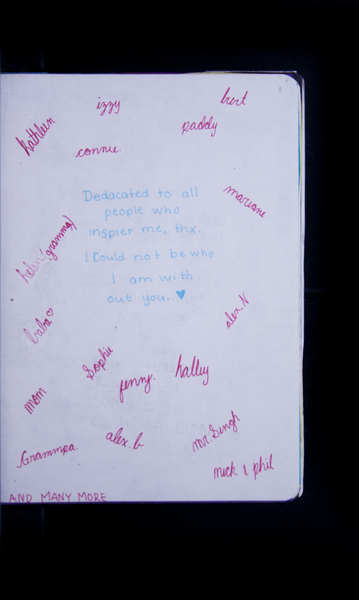 izzy
bret
paddy
Kathleen
connie
Dedacated to all
people who
inspier me, thx.
I Could not be who
I am with
out you. ♥
mariane
(gramma)
baba ♡
alex. N
Sophie
jenny.
halley
mom
alex. b
Mr. Singh
Grammpa.
mick & phil
AND MANY MORE